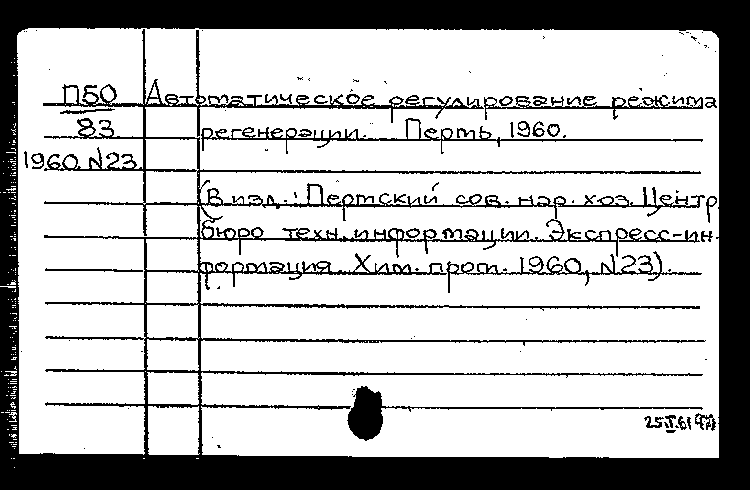 П50 Автоматическое регулирование режима
83 регенерации. Пермь, 1960.
1960.N23.
(В изд.: Пермский сов. нар. хоз. Центр.
бюро техн. информации. Экспресс-ин-
формация. Хим. пром. 1960, N23).
25.V.61